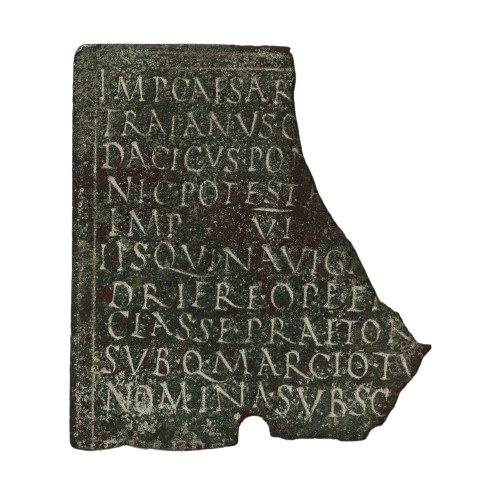 IMP·CAESAR
TRAIANVS·
DACICVS·PO
NIC·POTEST
IMP VI
IIS·QVI·NAVIG
CLASSE PRAETOR
SVB·Q·MARCIO·TV
NOMINA·SVBSC